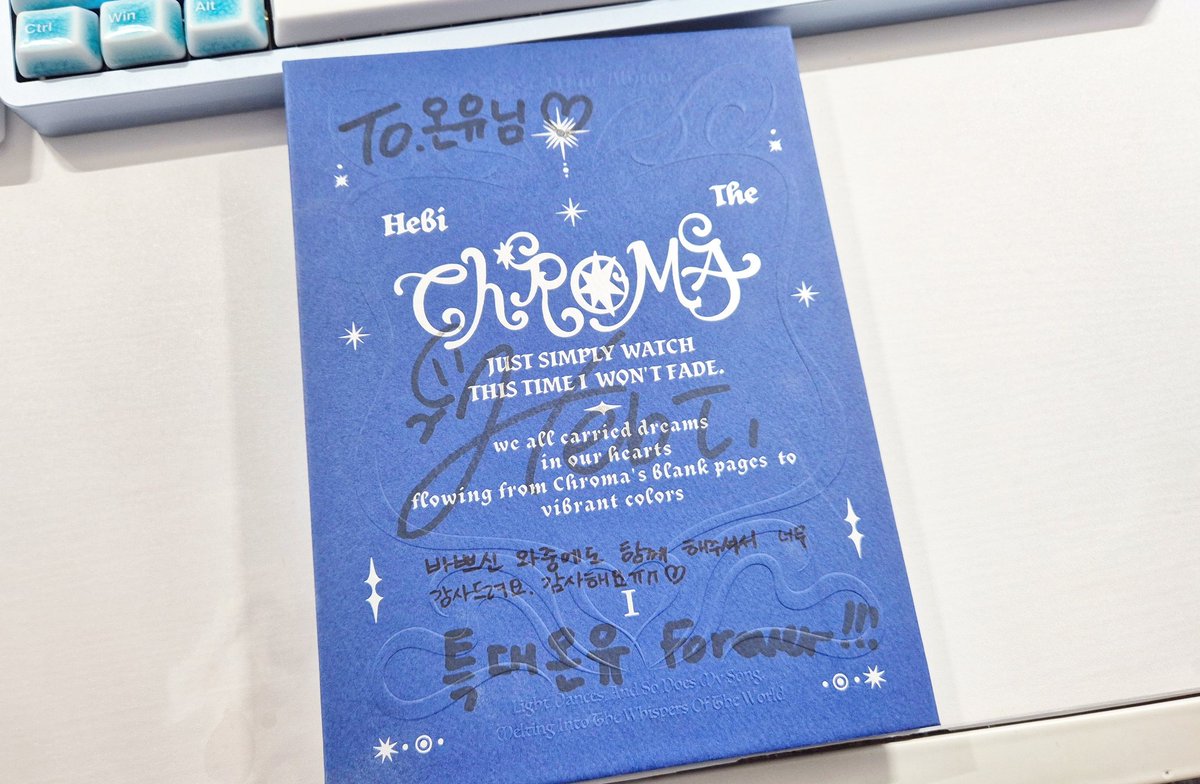 Ctrl
Win
Alt
To. 온유님♡
Hebi
The
CHROMA
JUST SIMPLY WATCH
THIS TIME I WON'T FADE.
Hebi.
we all carried dreams
in our hearts
flowing from Chroma's blank pages to
vibrant colors
바쁘신 와중에도 함께 해주셔서 너무
감사드려요. 감사해요ㅠㅠ♡
I
특대온유 Forever!!!
Light Dances And So Does My Song,
Melting Into The Whispers Of The World